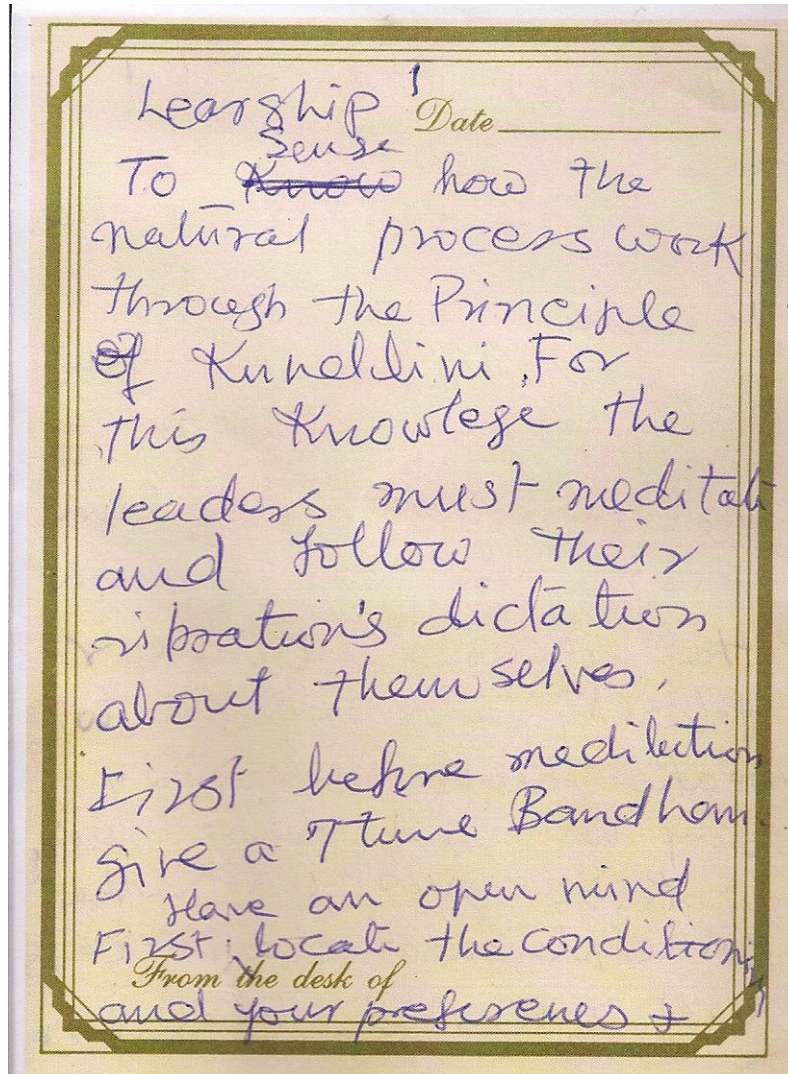 Learship 1 Date
Sense
To Know how the
natural process work
through the Principle
of Kundllini. For
this Knowlege the
leaders must meditate
and follow their
vibration's dictation
about themselves.
First before meditation
give a 7 time Bandham.
Have an open mind
First, locate the conditioning
From the desk of
and your preferences &